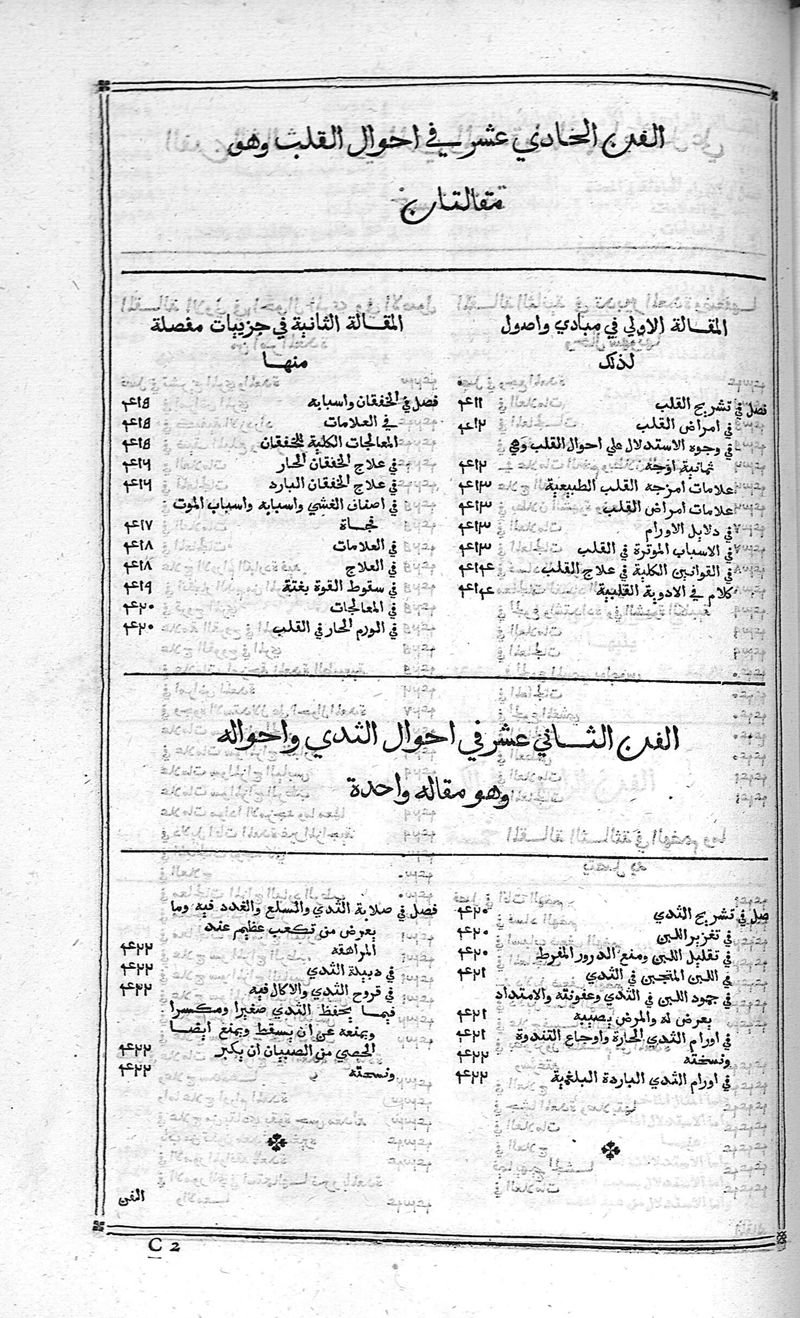 الفن الحادي عشر في احوال القلب وهو
مقالتان
المقالة الاولي في مبادي واصول
لذلك
فصل في تشريح القلب ۴۱۱
في امراض القلب ۴۱۲
في وجوه الاستدلال علي احوال القلب وهي
ثمانية اوجه ۴۱۲
علامات امزجه القلب الطبيعية ۴۱۳
علامات امراض القلب ۴۱۳
في دلايل الاورام ۴۱۳
في الاسباب الموثرة في القلب ۴۱۳
في القوانين الكلية في علاج القلب ۴۱۴
كلام في الادوية القلبية ۴۱۴
المقالة الثانية في جزييات مفصلة
منها
فصل في الخفقان واسبابه ۴۱۵
في العلامات ۴۱۵
المعالجات الكلية للخفقان ۴۱۵
في علاج الخفقان الحار ۴۱۶
في علاج الخفقان البارد ۴۱۶
في اصناف الغشي واسبابه واسباب الموت
فجاة ۴۱۷
في العلامات ۴۱۸
في العلاج ۴۱۸
في سقوط القوة بغتة ۴۱۹
في المعالجات ۴۲۰
في الورم الحار في القلب ۴۲۰
الفن الثاني عشر في احوال الثدي واحواله
وهو مقاله واحدة
فصل في تشريح الثدي ۴۲۰
في تغزير اللبن ۴۲۰
في تقليل اللبن ومنع الدرور المفرط ۴۲۰
في اللبن المتجبن في الثدي ۴۲۱
في جمود اللبن في الثدي وعفونته والامتداد
يعرض له والمرض يصيبه ۴۲۱
في اورام الثدي الحارة واوجاع الثندوة ۴۲۱
ونسخته ۴۲۲
في اورام الثدي الباردة البلغمية ۴۲۲
فصل في صلابة الثدي والسلع والغدد فيه وما
يعرض من تكعب عظيم عند
المراهقه ۴۲۲
في دبيلة الثدي ۴۲۲
في قروح الثدي والاكال فيه ۴۲۲
فيما يحفظ الثدي صغيرا ومكسرا
ويمنعه عن ان يسقط ويمنع ايضا
الخصي من الصبيان ان يكبر ۴۲۲
ونسخته ۴۲۲
الفن
C 2